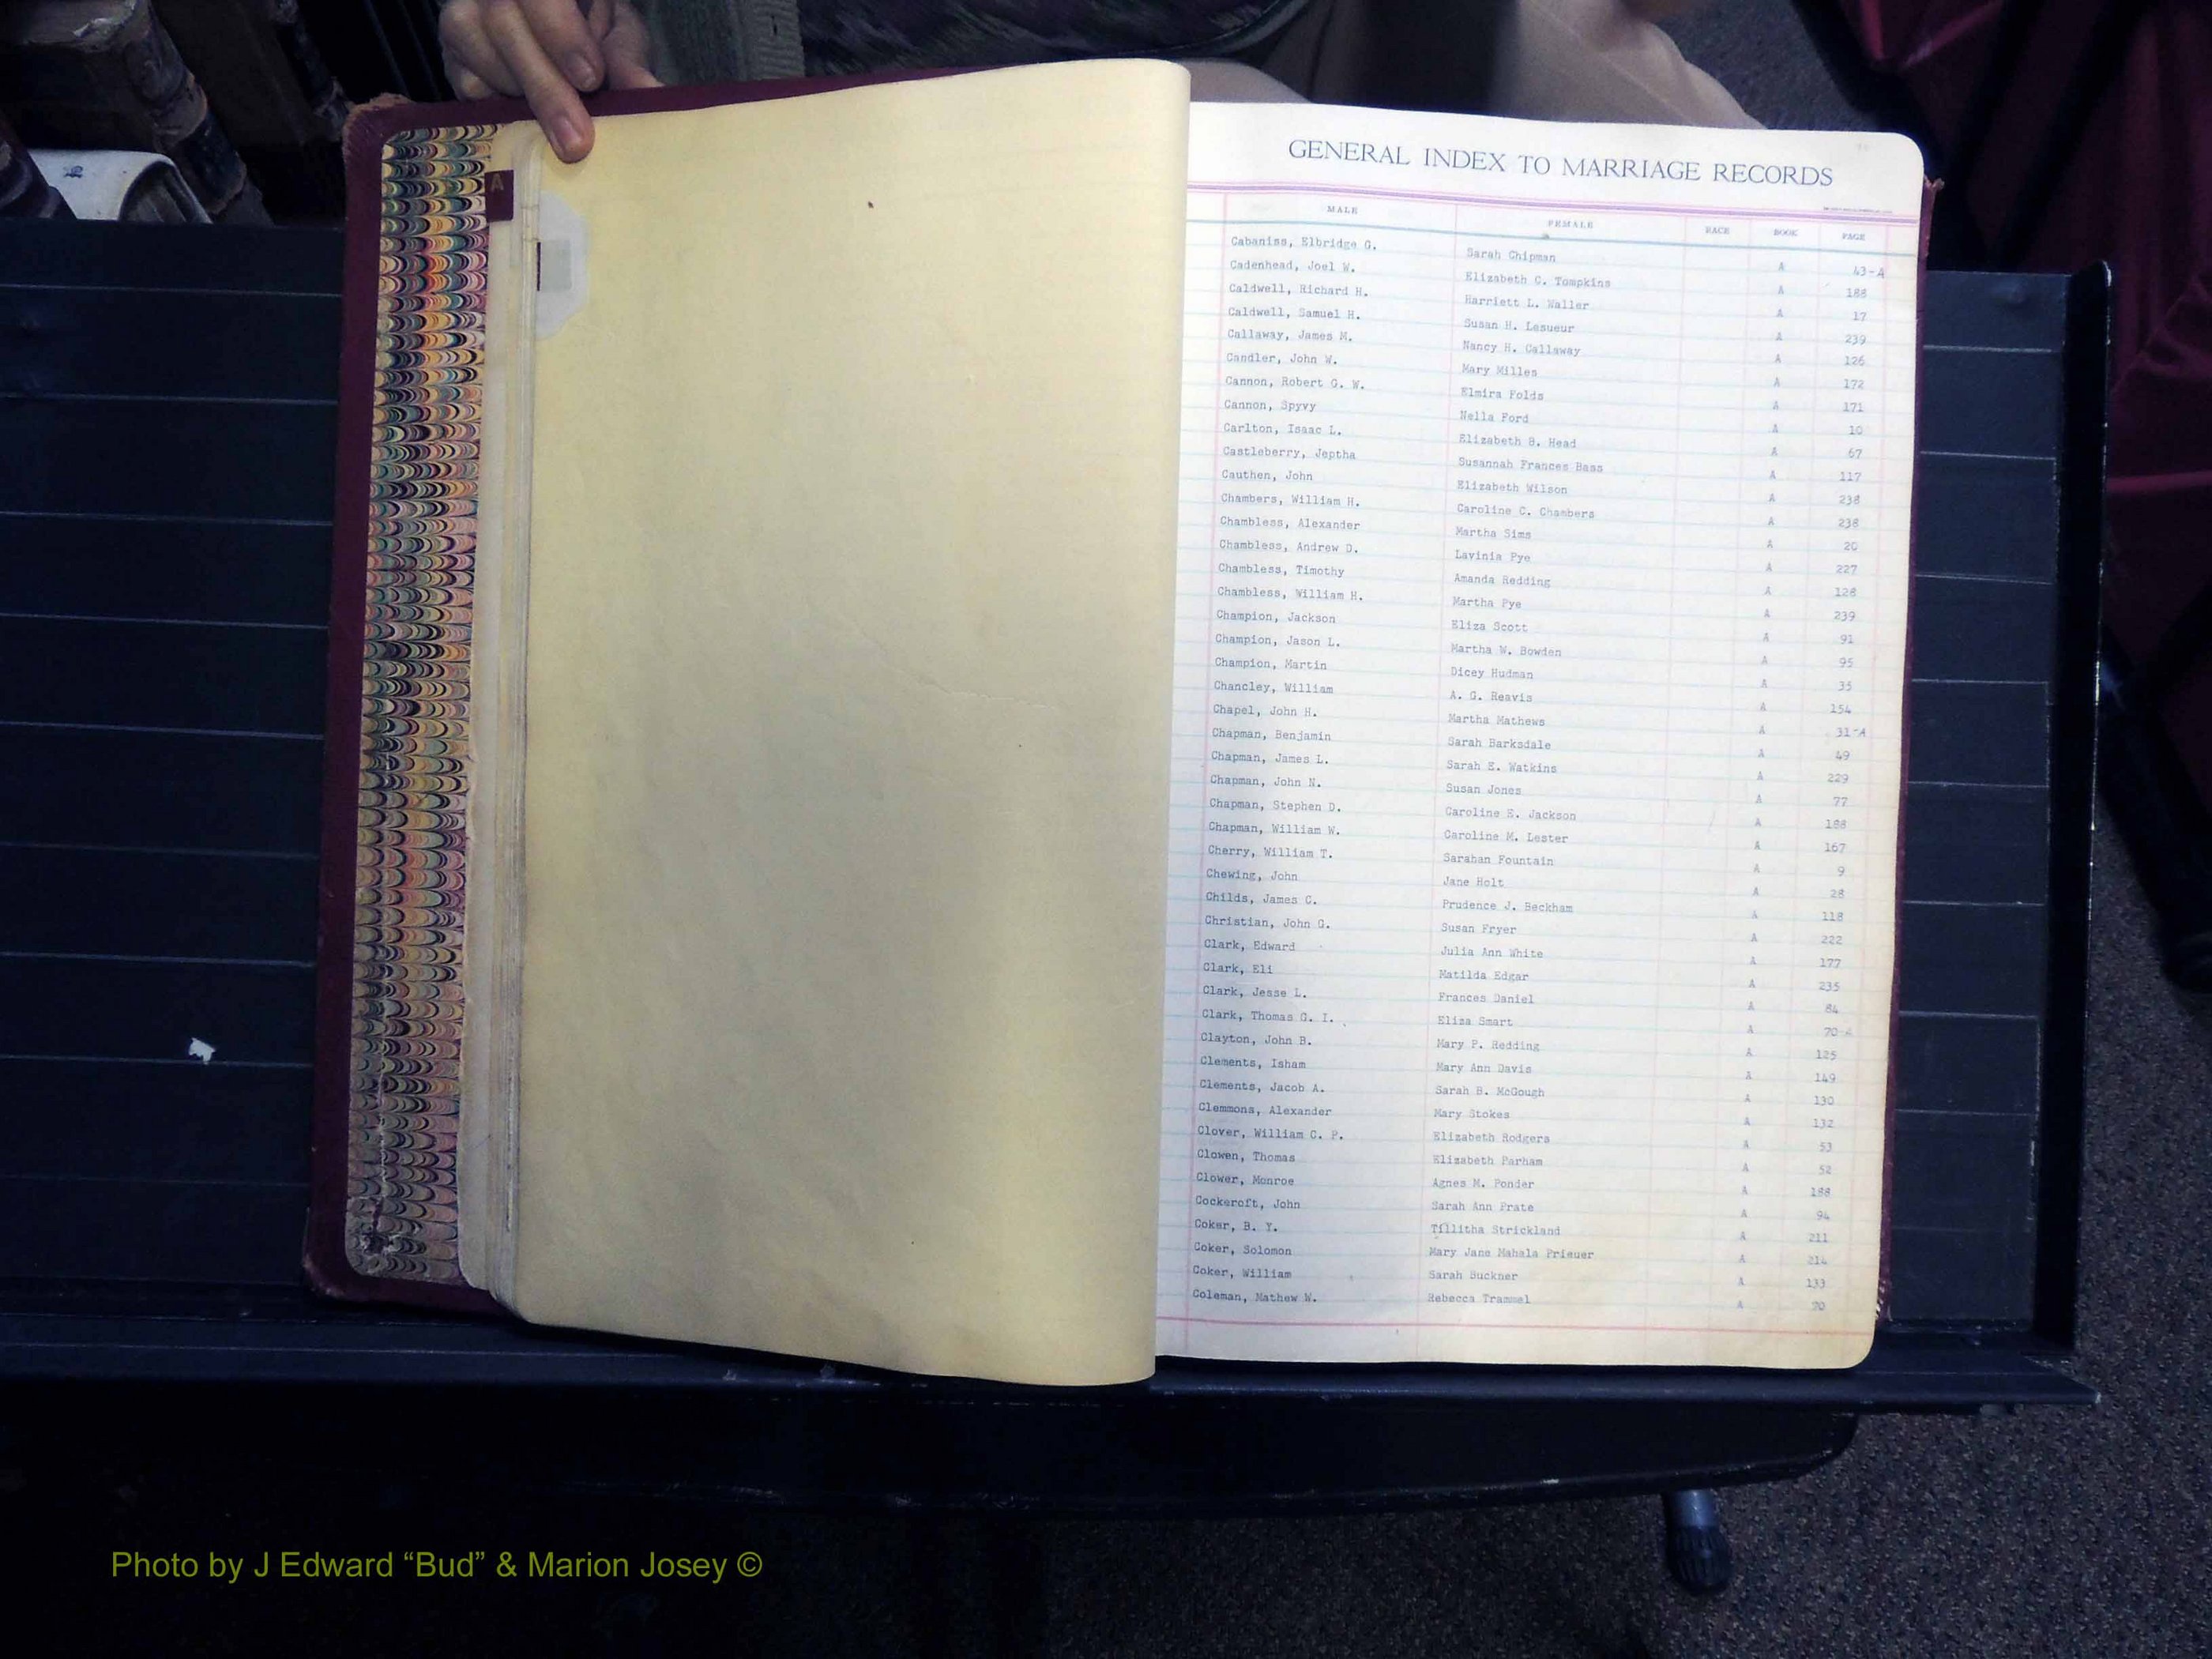 GENERAL INDEX TO MARRIAGE RECORDS
MALE FEMALE RACE BOOK PAGE
Cabaniss, Elbridge G. Sarah Chipman A 43-A
Cadenhead, Joel W. Elizabeth C. Tompkins A 188
Caldwell, Richard H. Harriett L. Waller A 17
Caldwell, Samuel H. Susan H. Lesueur A 239
Callaway, James M. Nancy H. Callaway A 126
Candler, John W. Mary Milles A 172
Cannon, Robert G. W. Elmira Folds A 171
Cannon, Spyvy Nella Ford A 10
Carlton, Isaac L. Elizabeth B. Head A 67
Castleberry, Jeptha Susannah Frances Bass A 117
Cauthen, John Elizabeth Wilson A 238
Chambers, William H. Caroline C. Chambers A 238
Chambless, Alexander Martha Sims A 20
Chambless, Andrew D. Lavinia Pye A 227
Chambless, Timothy Amanda Redding A 128
Chambless, William H. Martha Pye A 239
Champion, Jackson Eliza Scott A 91
Champion, Jason L. Martha W. Bowden A 95
Champion, Martin Dicey Hudman A 35
Chancley, William A. G. Reavis A 154
Chapel, John H. Martha Mathews A 31-A
Chapman, Benjamin Sarah Barksdale A 49
Chapman, James L. Sarah E. Watkins A 229
Chapman, John N. Susan Jones A 77
Chapman, Stephen D. Caroline E. Jackson A 188
Chapman, William W. Caroline M. Lester A 167
Cherry, William T. Sarahan Fountain A 9
Chewing, John Jane Holt A 28
Childs, James C. Prudence J. Beckham A 118
Christian, John G. Susan Fryer A 222
Clark, Edward Julia Ann White A 177
Clark, Eli Matilda Edgar A 235
Clark, Jesse L. Frances Daniel A 84
Clark, Thomas G. I. Eliza Smart A 70-A
Clayton, John B. Mary P. Redding A 125
Clements, Isham Mary Ann Davis A 149
Clements, Jacob A. Sarah B. McGough A 130
Clemmons, Alexander Mary Stokes A 132
Clover, William C. P. Elizabeth Rodgers A 53
Clowen, Thomas Elizabeth Parham A 52
Clower, Monroe Agnes M. Ponder A 188
Cockeroft, John Sarah Ann Prate A 94
Coker, B. Y. Tillitha Strickland A 211
Coker, Solomon Mary Jane Mahala Prieuer A 214
Coker, William Sarah Buckner A 133
Coleman, Mathew W. Rebecca Trammel A
A
Photo by J Edward “Bud” & Marion Josey ©